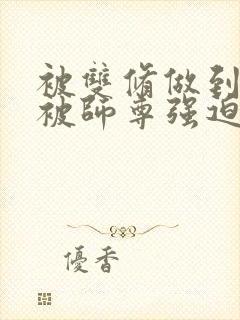 被雙脩做到
被師尊强迫
優香